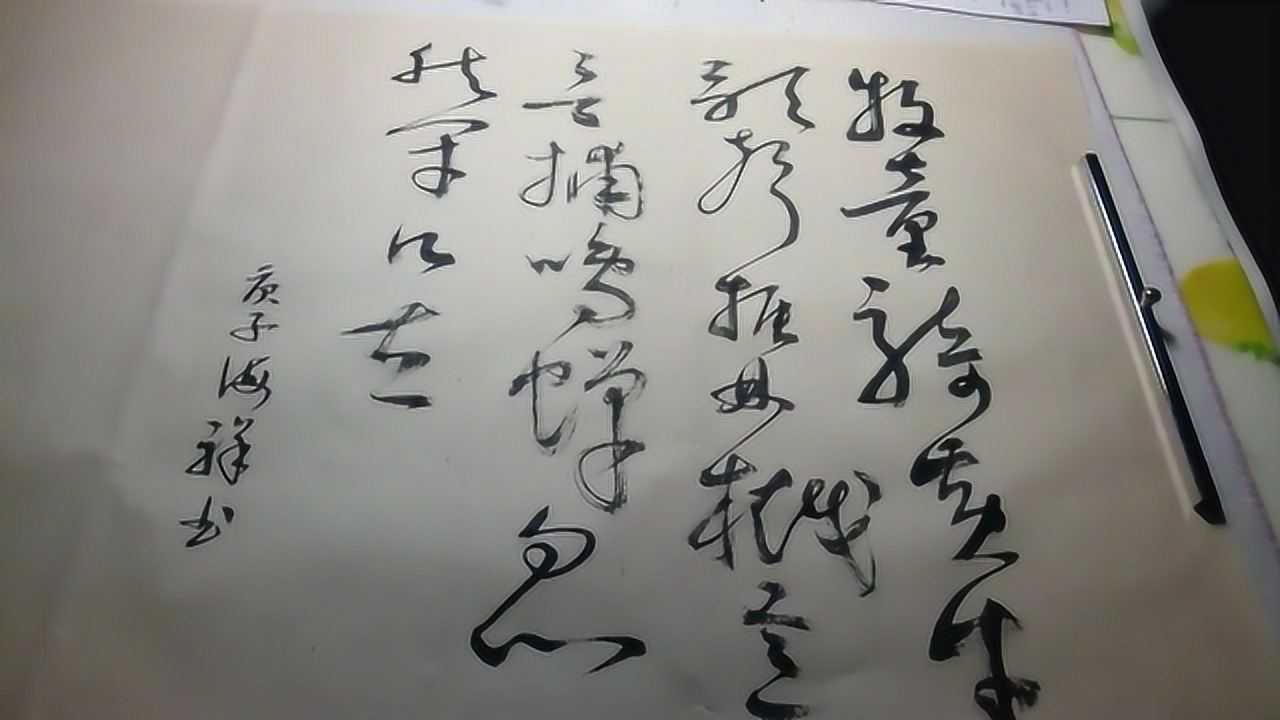 牧童骑黄牛
歌声振林樾意
欲捕鸣蝉忽
然闭口立
庚子海祥书